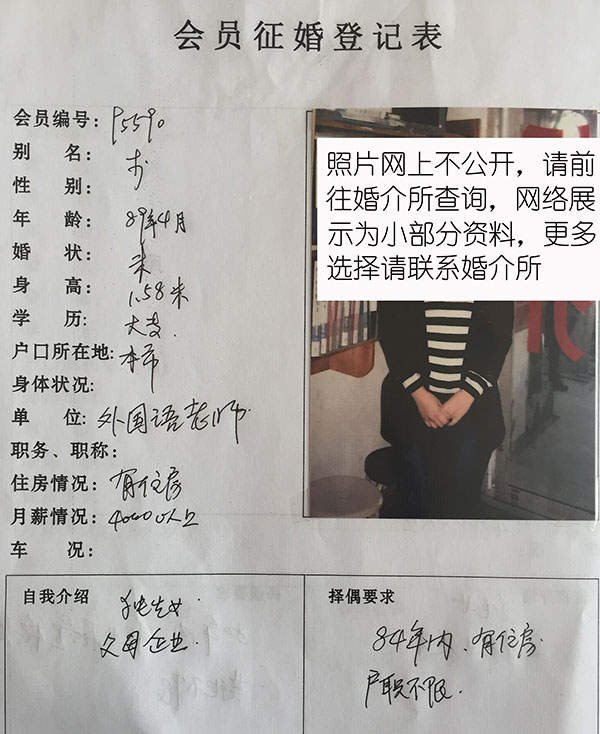 会员征婚登记表
会员编号: P5590
别 名:
性 别:
年 龄: 89年4月
婚 状: 未
身 高: 1.58米
学 历: 大专.
户口所在地: 本市
身体状况:
单 位: 外国语老师.
职务、职称:
住房情况: 有住房
月薪情况: 4000以上
车 况:
照片网上不公开，请前
往婚介所查询，网络展
示为小部分资料，更多
选择请联系婚介所
自我介绍
独生女
父母企业.
择偶要求
84年内、有住房.
户职不限.